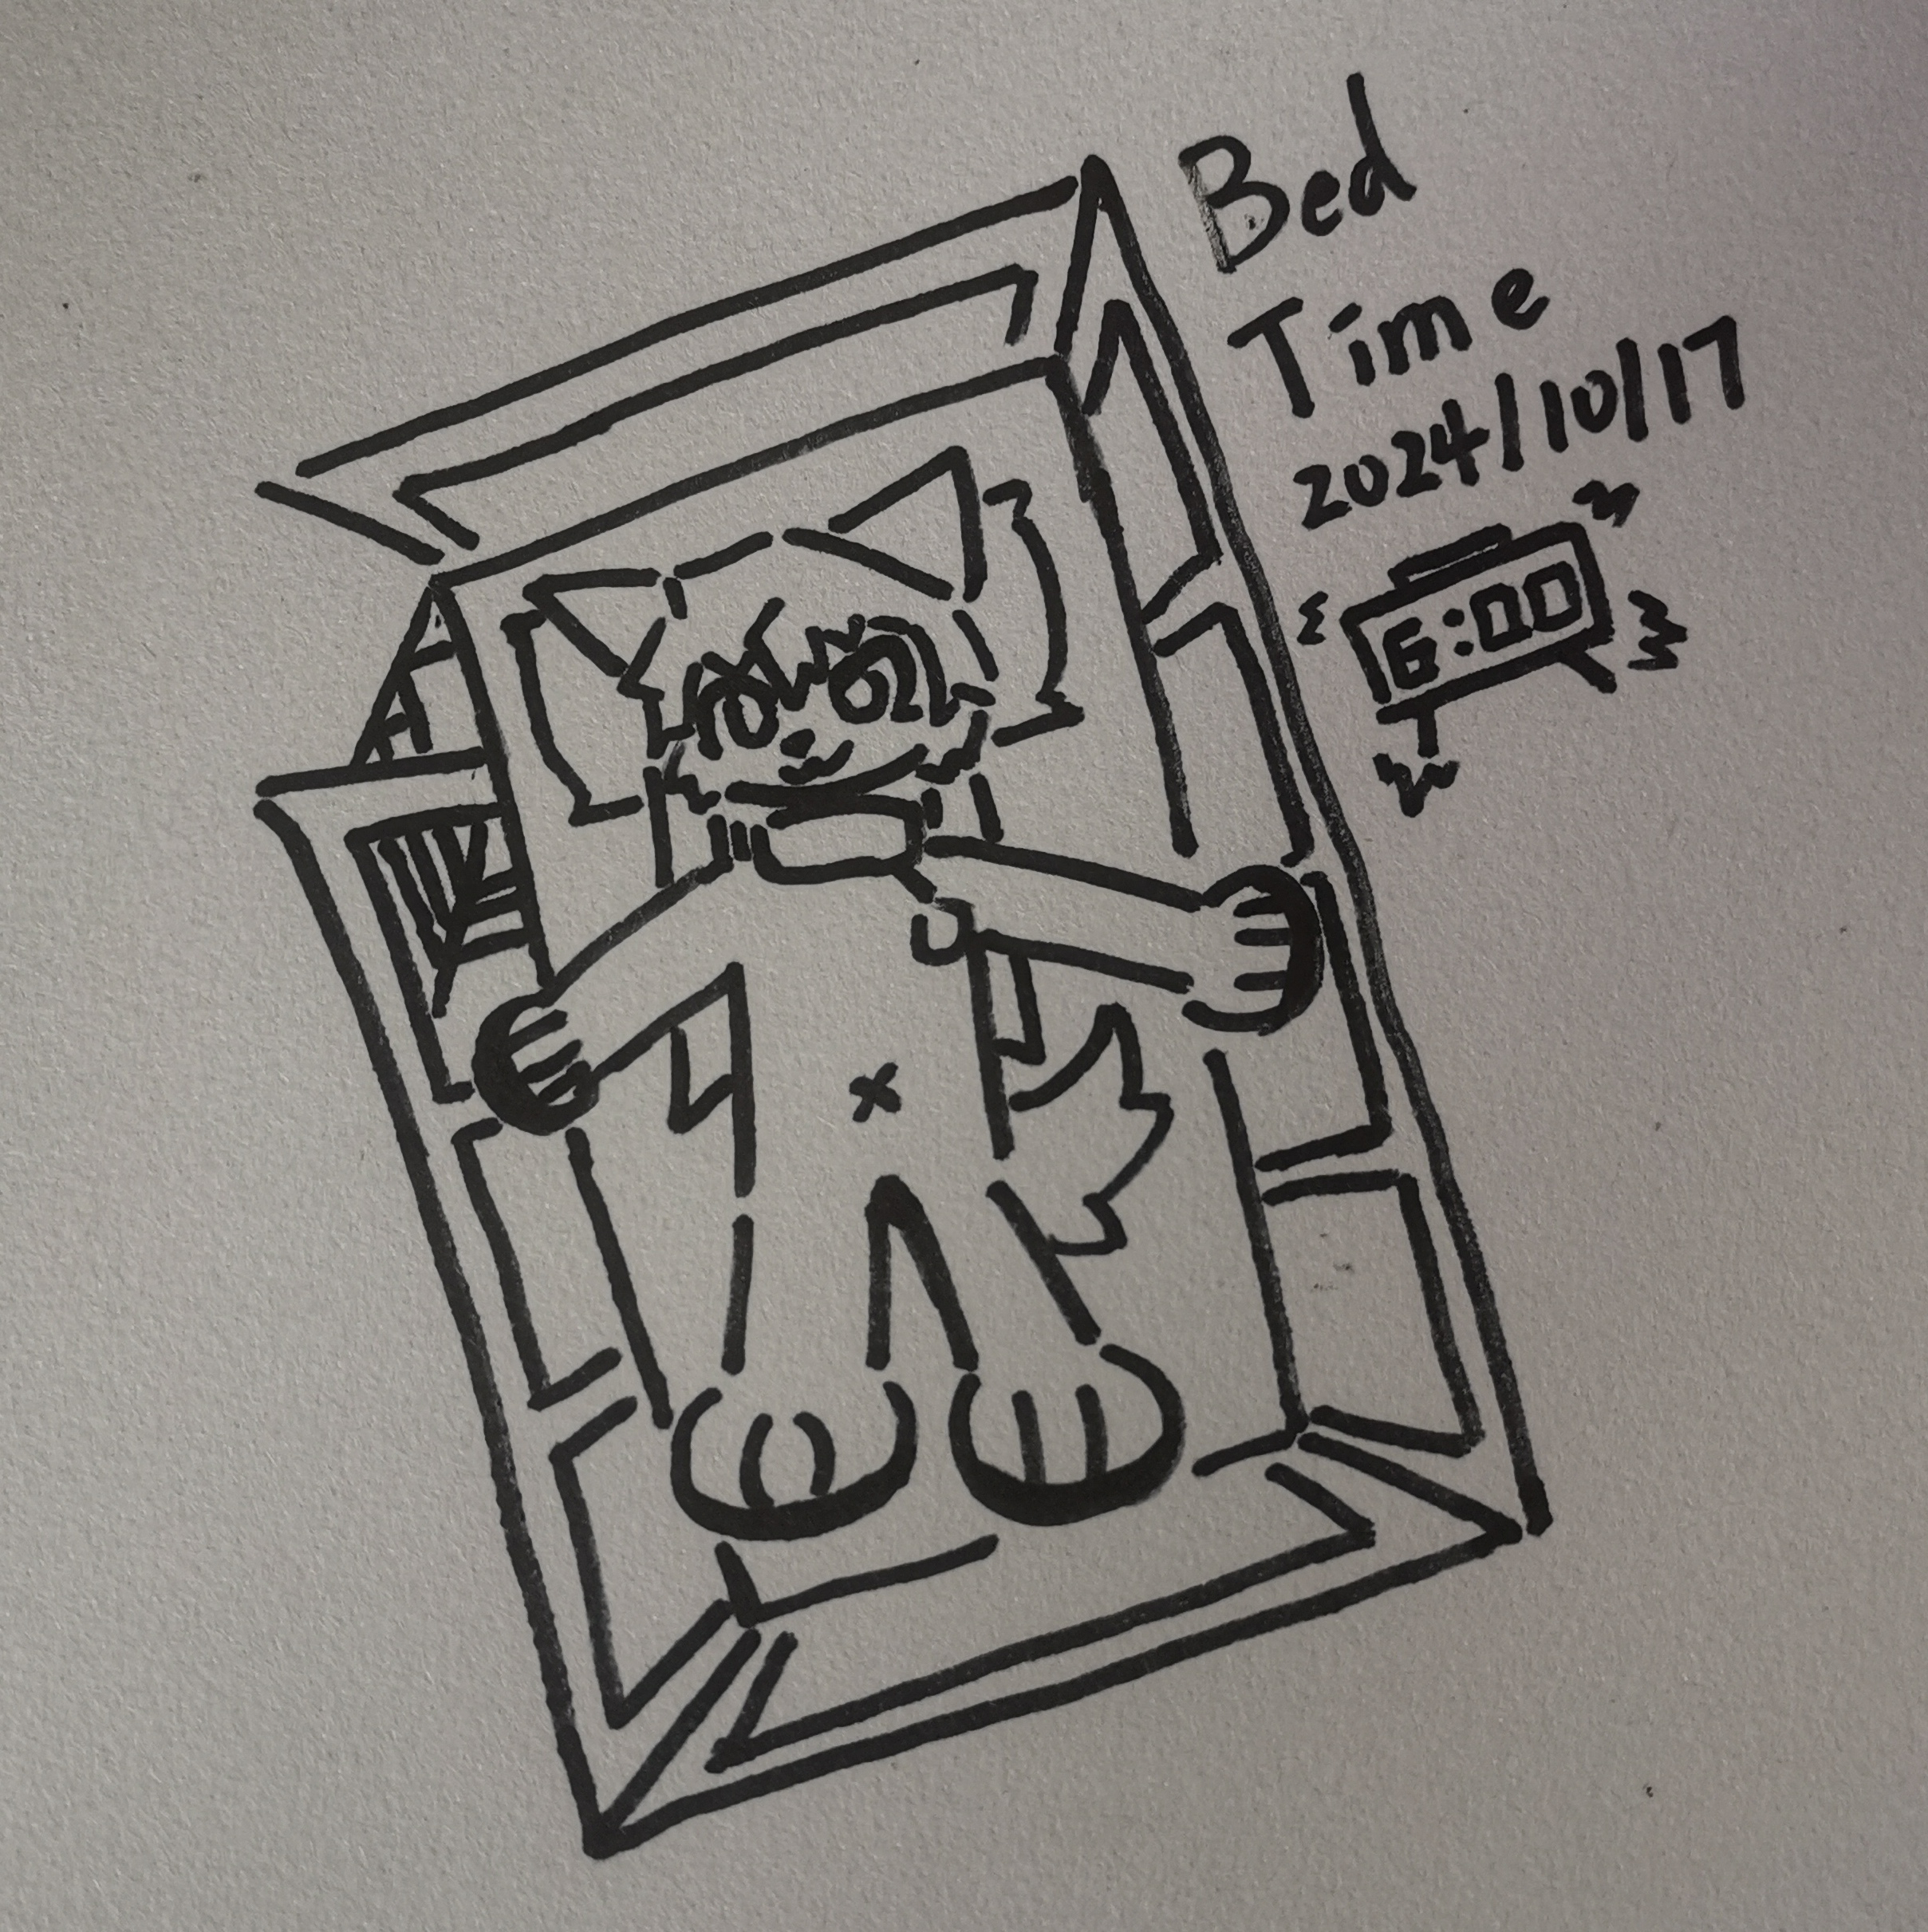 Bed
Time
2024/10/17
6:00